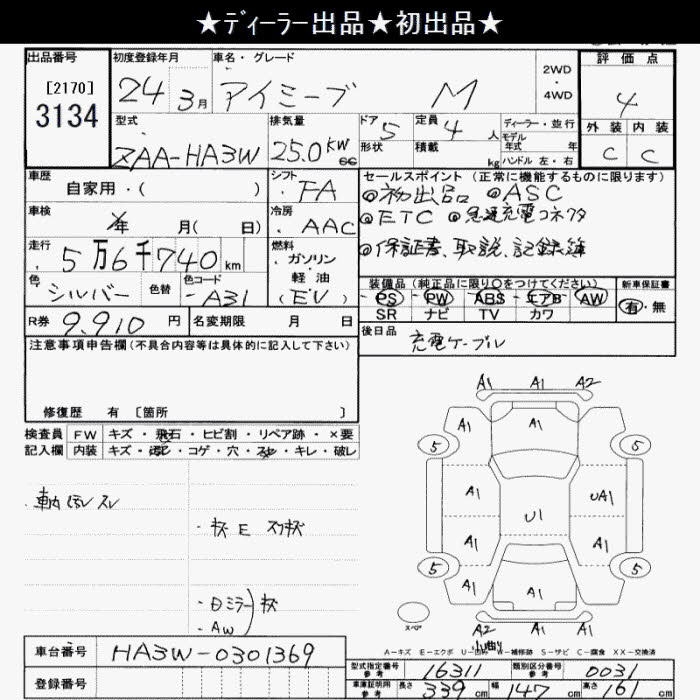 ★ディーラー出品★初出品★
出品番号 初度登録年月 車名・グレード 2WD・4WD 評価点
[2170] 3134 24年 3月 アイミーブ M 4
型式 排気量 ドア 5 定員 4人 ディーラー・並行 外装 内装
ZAA-HA3W 25.0 kW cc 形状 積載 kg モデル年式 年 ハンドル 左・右 C C
車歴 自家用・( ) シフト FA セールスポイント(正常に機能するものに限ります)
◎初出品 ◎ASC
車検 年 月( 日) 冷房 AAC ◎ETC ◎急速充電コネクタ
走行 5万6千740km 燃料 ガソリン・軽油(EV) ◎保証書、取説、記録簿
色 シルバー 色替 色コード A31 装備品(純正品に限り○をつけてください) 新車保証書
PS PW ABS エアB AW 有・無
SR ナビ TV カワ
R券 9.910円 名変期限 月 日 後日品 充電ケーブル
注意事項申告欄(不具合内容等は具体的に記入して下さい)
修復歴 有 [箇所 ]
検査員 FW キズ・飛石・ヒビ割・リペア跡・×要
記入欄 内装 キズ・汚レ・コゲ・穴・スレ・キレ・破レ
A1 A1 A2
A1 A1 A1
5 5
A1 UA1
U1
A1 A1
5 5
A1 A1 A1
スペア
A2 A1 A1
小凹
車内 汚レ スレ
・キズ E スリキズ
・日ミラー キズ
・AW
A-キズ E-エクボ U-凹み W-補修跡 S-サビ C-腐食 XX-交換済
車台番号 HA3W-0301369
型式指定番号 参考 16311 類別区分番号 参考 0031
登録番号
車庫証明用 参考 長さ 339cm 幅 147cm 高さ 161cm